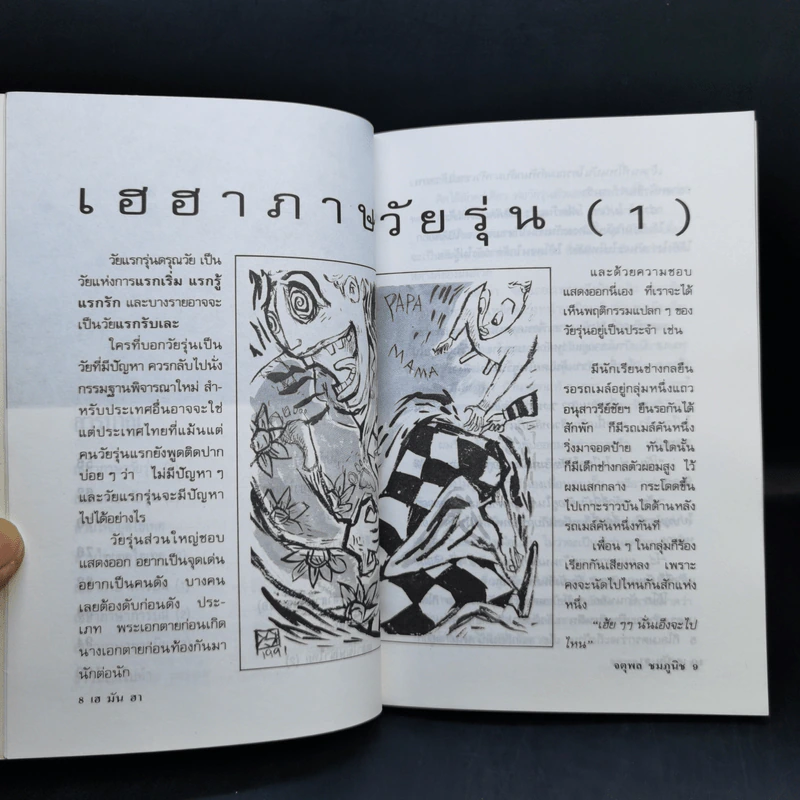 เฮฮาภาษวัยรุ่น (1)
วัยแรกรุ่นดรุณวัย เป็น
วัยแห่งการแรกเริ่ม แรกรู้
แรกรัก และบางรายอาจจะ
เป็นวัยแรกรับเละ
ใครที่บอกวัยรุ่นเป็น
วัยที่มีปัญหา ควรกลับไปนั่ง
กรรมฐานพิจารณาใหม่ สำ-
หรับประเทศอื่นอาจจะใช่
แต่ประเทศไทยที่แม้นแต่
คนวัยรุ่นแรกยังพูดติดปาก
บ่อยๆ ว่า ไม่มีปัญหาๆ
และวัยแรกรุ่นจะมีปัญหา
ไปได้อย่างไร
วัยรุ่นส่วนใหญ่ชอบ
แสดงออก อยากเป็นจุดเด่น
อยากเป็นคนดัง บางคน
เลยต้องดับก่อนดัง ประ-
เภท พระเอกตายก่อนเกิด
นางเอกตายก่อนท้องกันมา
นักต่อนัก
8 เฮ มัน ฮา
PAPA
MAMA
1991
และด้วยความชอบ
แสดงออกนี่เอง ที่เราจะได้
เห็นพฤติกรรมแปลก ๆ ของ
วัยรุ่นอยู่เป็นประจำ เช่น
มีนักเรียนช่างกลยืน
รอรถเมล์อยู่กลุ่มหนึ่งแถว
อนุสาวรีย์ชัยฯ ยืนรอกันได้
สักพัก ก็มีรถเมล์คันหนึ่ง
วิ่งมาจอดป้าย ทันใดนั้น
ก็มีเด็กช่างกลตัวผอมสูง ไว้
ผมแสกกลาง กระโดดขึ้น
ไปเกาะราวบันไดด้านหลัง
รถเมล์คันหนึ่งทันที
เพื่อน ๆ ในกลุ่มก็ร้อง
เรียกกันเสียงหลง เพราะ
คงจะนัดไปไหนกันสักแห่ง
หนึ่ง
"เฮ้ย ๆๆ นั่นเอ็งจะไป
ไหน"
จตุพล ชมภูนิช 9